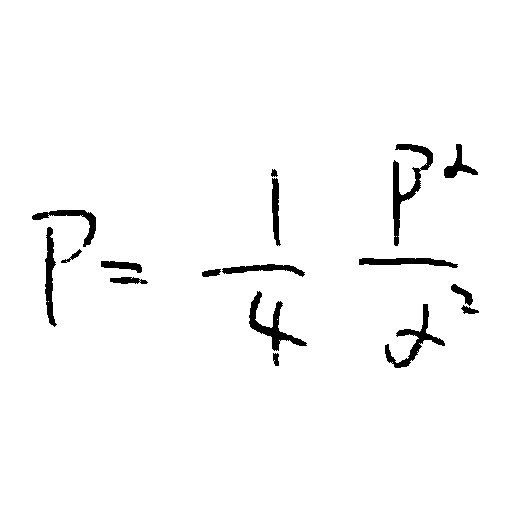 P = \frac{1}{4} \frac{\beta^{2}}{t^{2}}